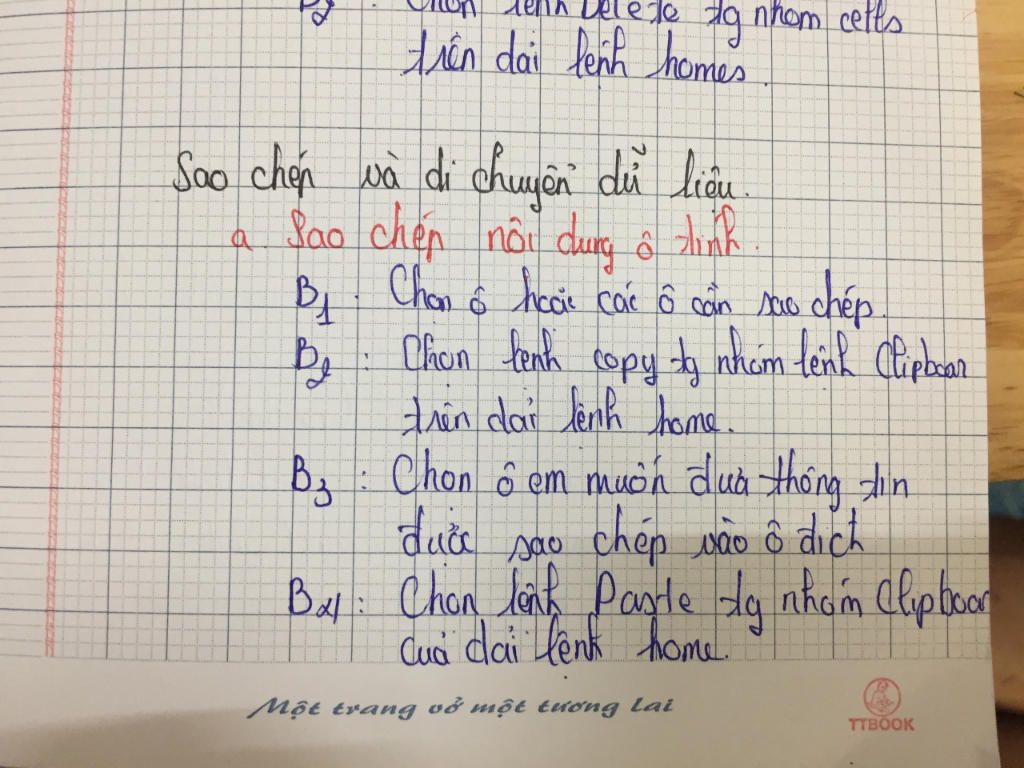 B2 : Chọn lệnh Delete tg nhóm cells
trên dải lệnh homes.
Sao chép và di chuyển dữ liệu.
a. Sao chép nội dung ô tính.
B1 : Chọn ô hoặc các ô cần sao chép.
B2 : Chọn lệnh copy tg nhóm lệnh Clipboar
trên dải lệnh home.
B3 : Chọn ô em muốn đưa thông tin
được sao chép vào ô đích
B4 : Chọn lệnh Paste tg nhóm Clipboar
của dải lệnh home.
Một trang vở một tương lai
TTBOOK